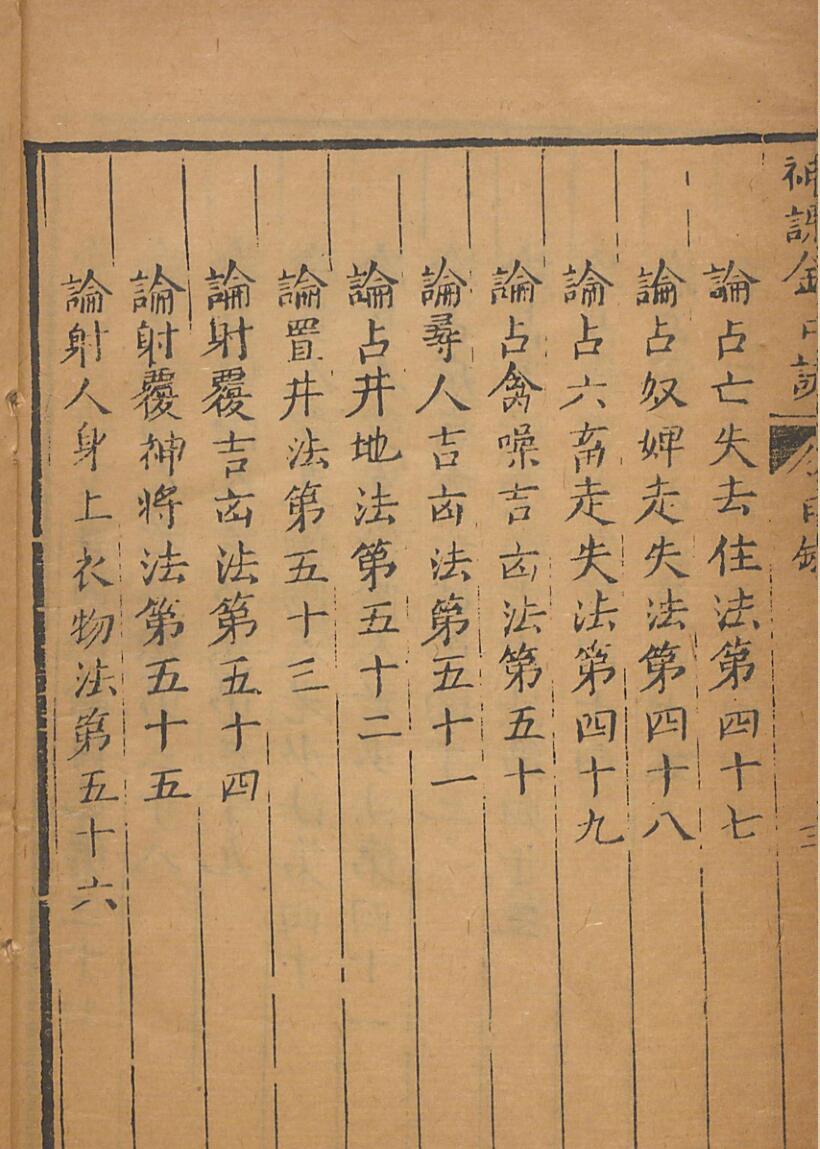 神課金口訣 目錄 三
論占亡失去住法第四十七
論占奴婢走失法第四十八
論占六畜走失法第四十九
論占禽噪吉凶法第五十
論尋人吉凶法第五十一
論占井地法第五十二
論置井法第五十三
論射覆吉凶法第五十四
論射覆神將法第五十五
論射人身上衣物法第五十六